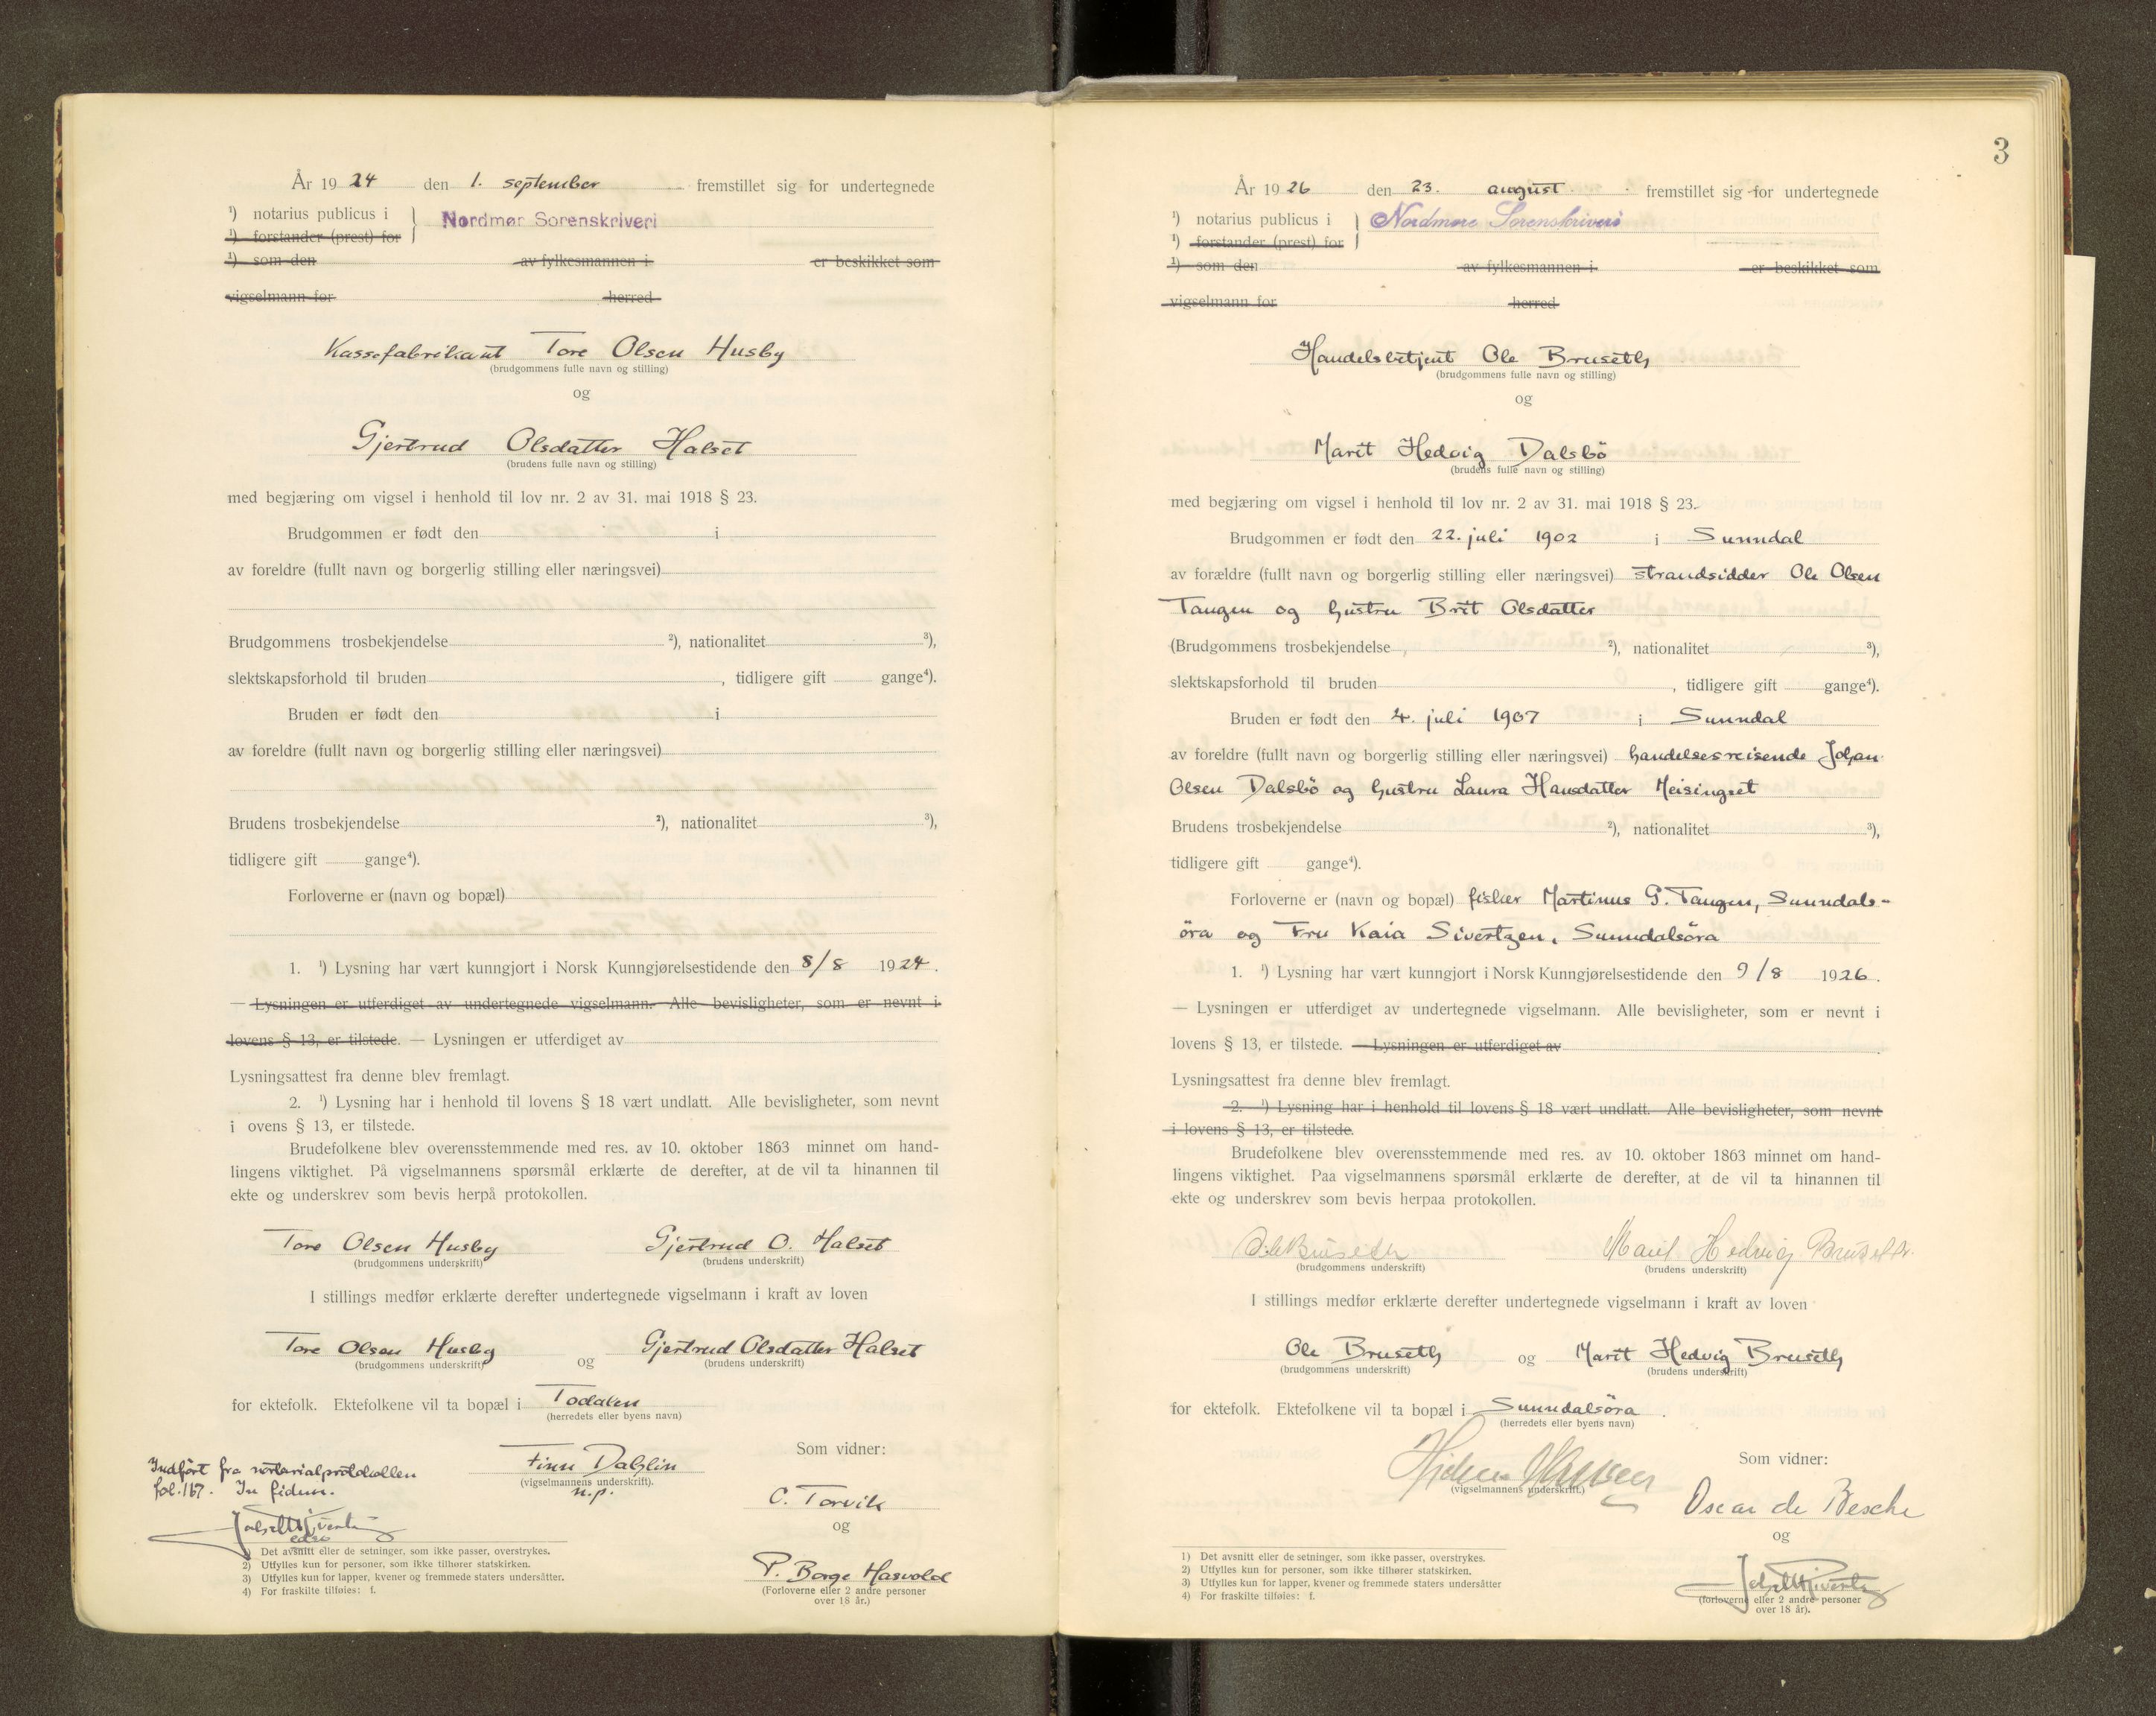 År 1924 den 1. september fremstillet sig for undertegnede
¹) notarius publicus i } Nordmør Sorenskriveri
¹) forstander (prest) for
¹) som den av fylkesmannen i er beskikket som
vigselmann for herred
Kassefabrikant Tore Olsen Husby
(brudgommens fulle navn og stilling)
og
Gjertrud Olsdatter Halset
(brudens fulle navn og stilling)
med begjæring om vigsel i henhold til lov nr. 2 av 31. mai 1918 § 23.
Brudgommen er født den i
av foreldre (fullt navn og borgerlig stilling eller næringsvei)
Brudgommens trosbekjendelse ²), nationalitet ³),
slektskapsforhold til bruden , tidligere gift gange⁴).
Bruden er født den i
av foreldre (fullt navn og borgerlig stilling eller næringsvei)
Brudens trosbekjendelse ²), nationalitet ³),
tidligere gift gange⁴).
Forloverne er (navn og bopæl)
1. ¹) Lysning har vært kunngjort i Norsk Kunngjørelsestidende den 8/8 1924.
— Lysningen er utferdiget av undertegnede vigselmann. Alle bevisligheter, som er nevnt i
lovens § 13, er tilstede. — Lysningen er utferdiget av
Lysningsattest fra denne blev fremlagt.
2. ¹) Lysning har i henhold til lovens § 18 vært undlatt. Alle bevisligheter, som nevnt
i ovens § 13, er tilstede.
Brudefolkene blev overensstemmende med res. av 10. oktober 1863 minnet om hand-
lingens viktighet. På vigselmannens spørsmål erklærte de derefter, at de vil ta hinannen til
ekte og underskrev som bevis herpå protokollen.
Tore Olsen Husby Gjertrud O. Halset
(brudgommens underskrift) (brudens underskrift)
I stillings medfør erklærte derefter undertegnede vigselmann i kraft av loven
Tore Olsen Husby og Gjertrud Olsdatter Halset
(brudgommens underskrift) (brudens underskrift)
for ektefolk. Ektefolkene vil ta bopæl i Todalen
(herredets eller byens navn)
Som vidner:
Indført fra notarialprotokollen
fol. 167. In fidem.
Finn Dahlin
(vigselmannens underskrift).
n.p.
C. Torvik
og
P. Borge Hasvold
(Forloverne eller 2 andre personer
over 18 år.)
1) Det avsnitt eller de setninger, som ikke passer, overstrykes.
2) Utfylles kun for personer, som ikke tilhører statskirken.
3) Utfylles kun for lapper, kvener og fremmede staters undersåtter.
4) For fraskilte tilføies: f.
3
År 1926 den 23. august fremstillet sig for undertegnede
¹) notarius publicus i } Nordmøre Sorenskriveri
¹) forstander (prest) for
¹) som den av fylkesmannen i er beskikket som
vigselmann for herred
Handelsbetjent Ole Bruseth
(brudgommens fulle navn og stilling)
og
Marit Hedvig Dalsbö
(brudens fulle navn og stilling)
med begjæring om vigsel i henhold til lov nr. 2 av 31. mai 1918 § 23.
Brudgommen er født den 22. juli 1902 i Sunndal
av forældre (fullt navn og borgerlig stilling eller næringsvei) strandsidder Ole Olsen
Tangen og hustru Brit Olsdatter
(Brudgommens trosbekjendelse ²), nationalitet ³),
slektskapsforhold til bruden , tidligere gift gange⁴).
Bruden er født den 4. juli 1907 i Sunndal
av foreldre (fullt navn og borgerlig stilling eller næringsvei) handelsesreisende Johan
Olsen Dalsbö og hustru Laura Hansdatter Meisingset
Brudens trosbekjendelse ²), nationalitet ³),
tidligere gift gange⁴).
Forloverne er (navn og bopæl) fisker Martinus G. Tangen, Sunndals-
öra og Fru Kaia Sivertzen, Sunndalsöra
1. ¹) Lysning har vært kunngjort i Norsk Kunngjørelsestidende den 9/8 1926.
— Lysningen er utferdiget av undertegnede vigselmann. Alle bevisligheter, som er nevnt i
lovens § 13, er tilstede. — Lysningen er utferdiget av
Lysningsattest fra denne blev fremlagt.
2. ¹) Lysning har i henhold til lovens § 18 vært undlatt. Alle bevisligheter, som nevnt
i lovens § 13, er tilstede.
Brudefolkene blev overensstemmende med res. av 10. oktober 1863 minnet om hand-
lingens viktighet. Paa vigselmannens spørsmål erklærte de derefter, at de vil ta hinannen til
ekte og underskrev som bevis herpaa protokollen.
Ole Bruseth Marit Hedvig Bruseth.
(brudgommens underskrift) (brudens underskrift)
I stillings medfør erklærte derefter undertegnede vigselmann i kraft av loven
Ole Bruseth og Marit Hedvig Bruseth
(brudgommens underskrift) (brudens underskrift)
for ektefolk. Ektefolkene vil ta bopæl i Sunndalsöra.
(herredets eller byens navn)
(vigselmannens underskrift.)
Som vidner:
Oscar de Besche
og
(forloverne eller 2 andre personer
over 18 år).
1) Det avsnitt eller de setninger, som ikke passer, overstrykes.
2) Utfylles kun for personer, som ikke tilhører statskirken.
3) Utfylles kun for lapper, kvener og fremmede staters undersåtter
4) For fraskilte tilføies: f.